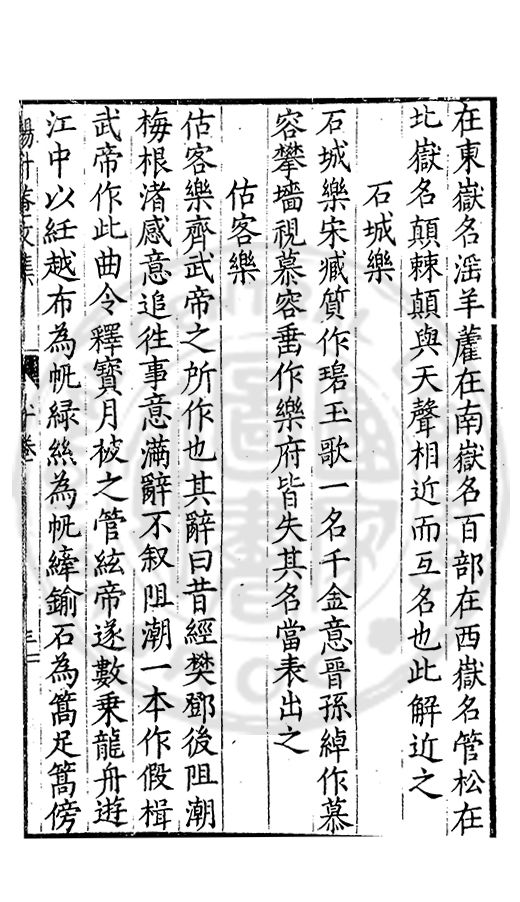 在東嶽名淫羊藿在南嶽名百部在西嶽名管松在
北嶽名顛棘顛與天聲相近而互名也此解近之
石城樂
石城樂宋臧質作碧玉歌一名千金意晉孫綽作慕
容攀墻視慕容垂作樂府皆失其名當表出之
估客樂
估客樂齊武帝之所作也其辭曰昔經樊鄧後阻潮
梅根渚感意追徃事意滿辭不叙阻潮一本作假楫
武帝作此曲令釋寶月被之管絃帝遂數乗龍舟遊
江中以紝越布為帆緑絲為帆縴鍮石為篙足篙傍